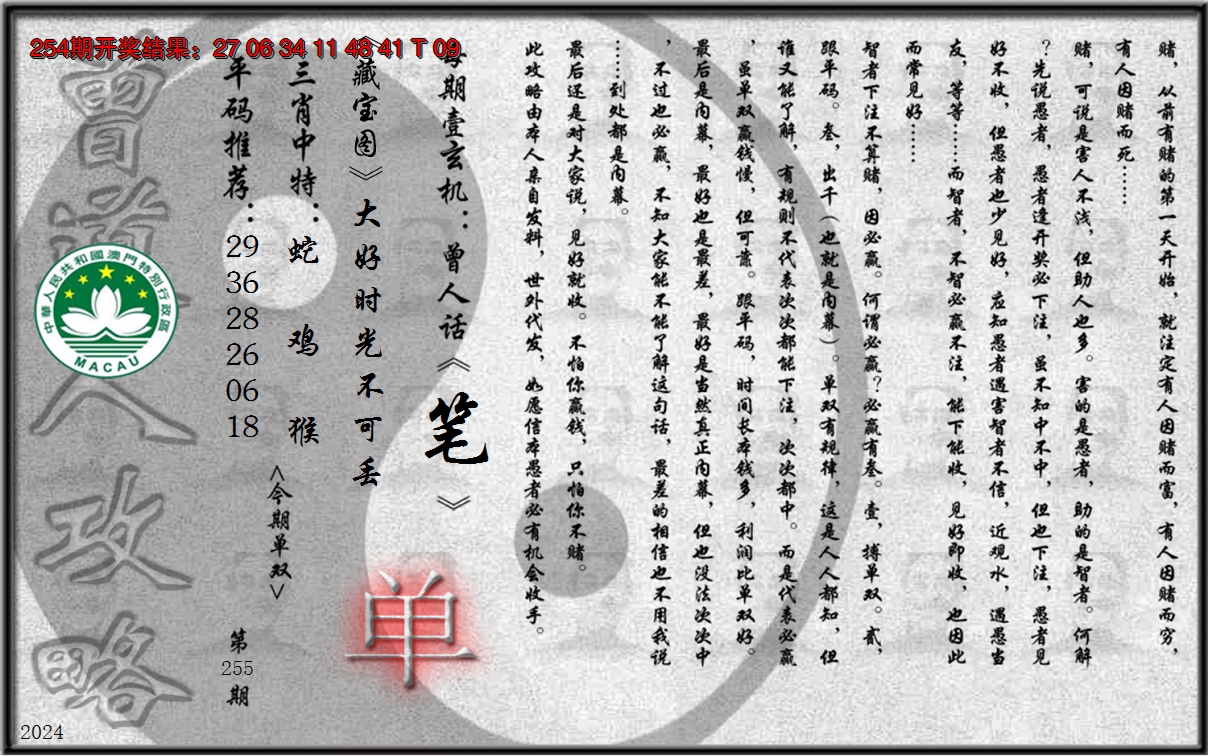 254期开奖结果：27 06 34 11 48 41 T 09
赌，从前有赌的第一天开始，就注定有人因赌而富，有人因赌而穷，
有人因赌而死……
赌，可说是害人不浅，但助人也多。害的是愚者，助的是智者。何解
？先说愚者，愚者逢开奖必下注，虽不知中不中，但也下注，愚者见
好不收，但愚者也少见好，应知愚者遇害智者不信，近观水，遇愚当
友，等等……而智者，不智必赢不注，能下能收，见好即收，也因此
而常见好……
智者下注不算赌，因必赢。何谓必赢？必赢有叁。壹，搏单双。贰，
跟平码。叁，出千（也就是内幕）。单双有规律，这是人人都知，但
谁又能了解，有规则不代表次次都能下注，次次都中。而是代表必赢
，虽单双赢钱慢，但可靠。跟平码，时间长本钱多，利润比单双好。
最后是内幕，最好也是最差，最好是当然真正内幕，但也没法次次中
，不过也必赢，不知大家能不能了解这句话，最差的相信也不用我说
……到处都是内幕。
最后还是对大家说，见好就收。不怕你赢钱，只怕你不赌。
此攻略由本人亲自发料，世外代发，如愿信本愚者必有机会收手。
每期壹玄机：曾人话《笔》
《藏宝图》大好时光不可丢
单
三肖中特：蛇 鸡 猴
<今期单双>
平码推荐：29 36 28 26 06 18
第255期
曾道人攻略
中華人民共和國澳門特別行政區
MACAU
2024